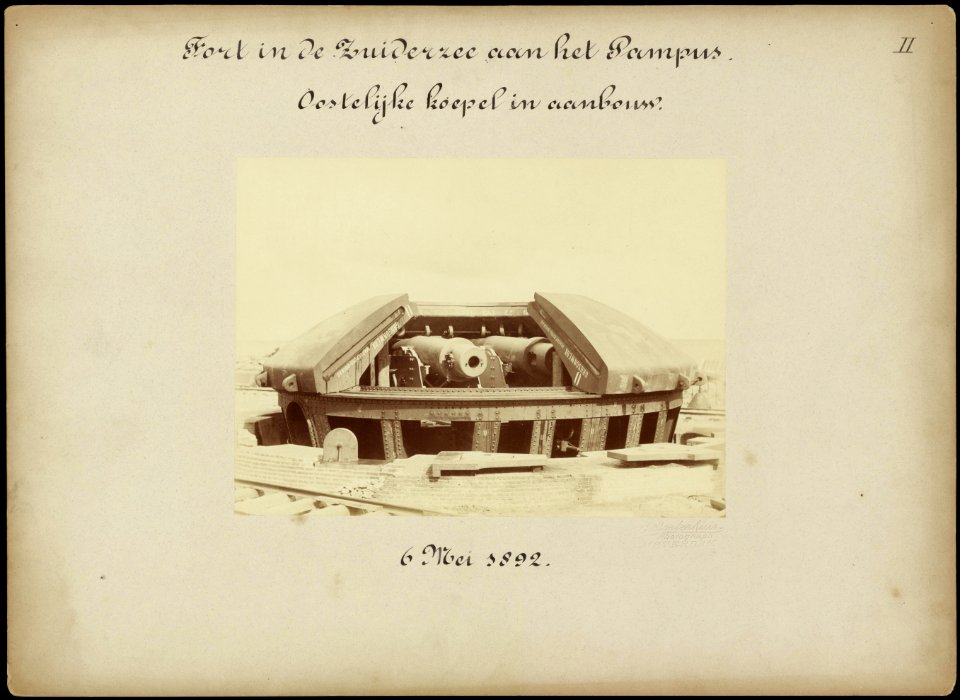 Fort in de Zuiderzee aan het Pampus.
II
Oostelijke koepel in aanbouw.
6 Mei 1892.